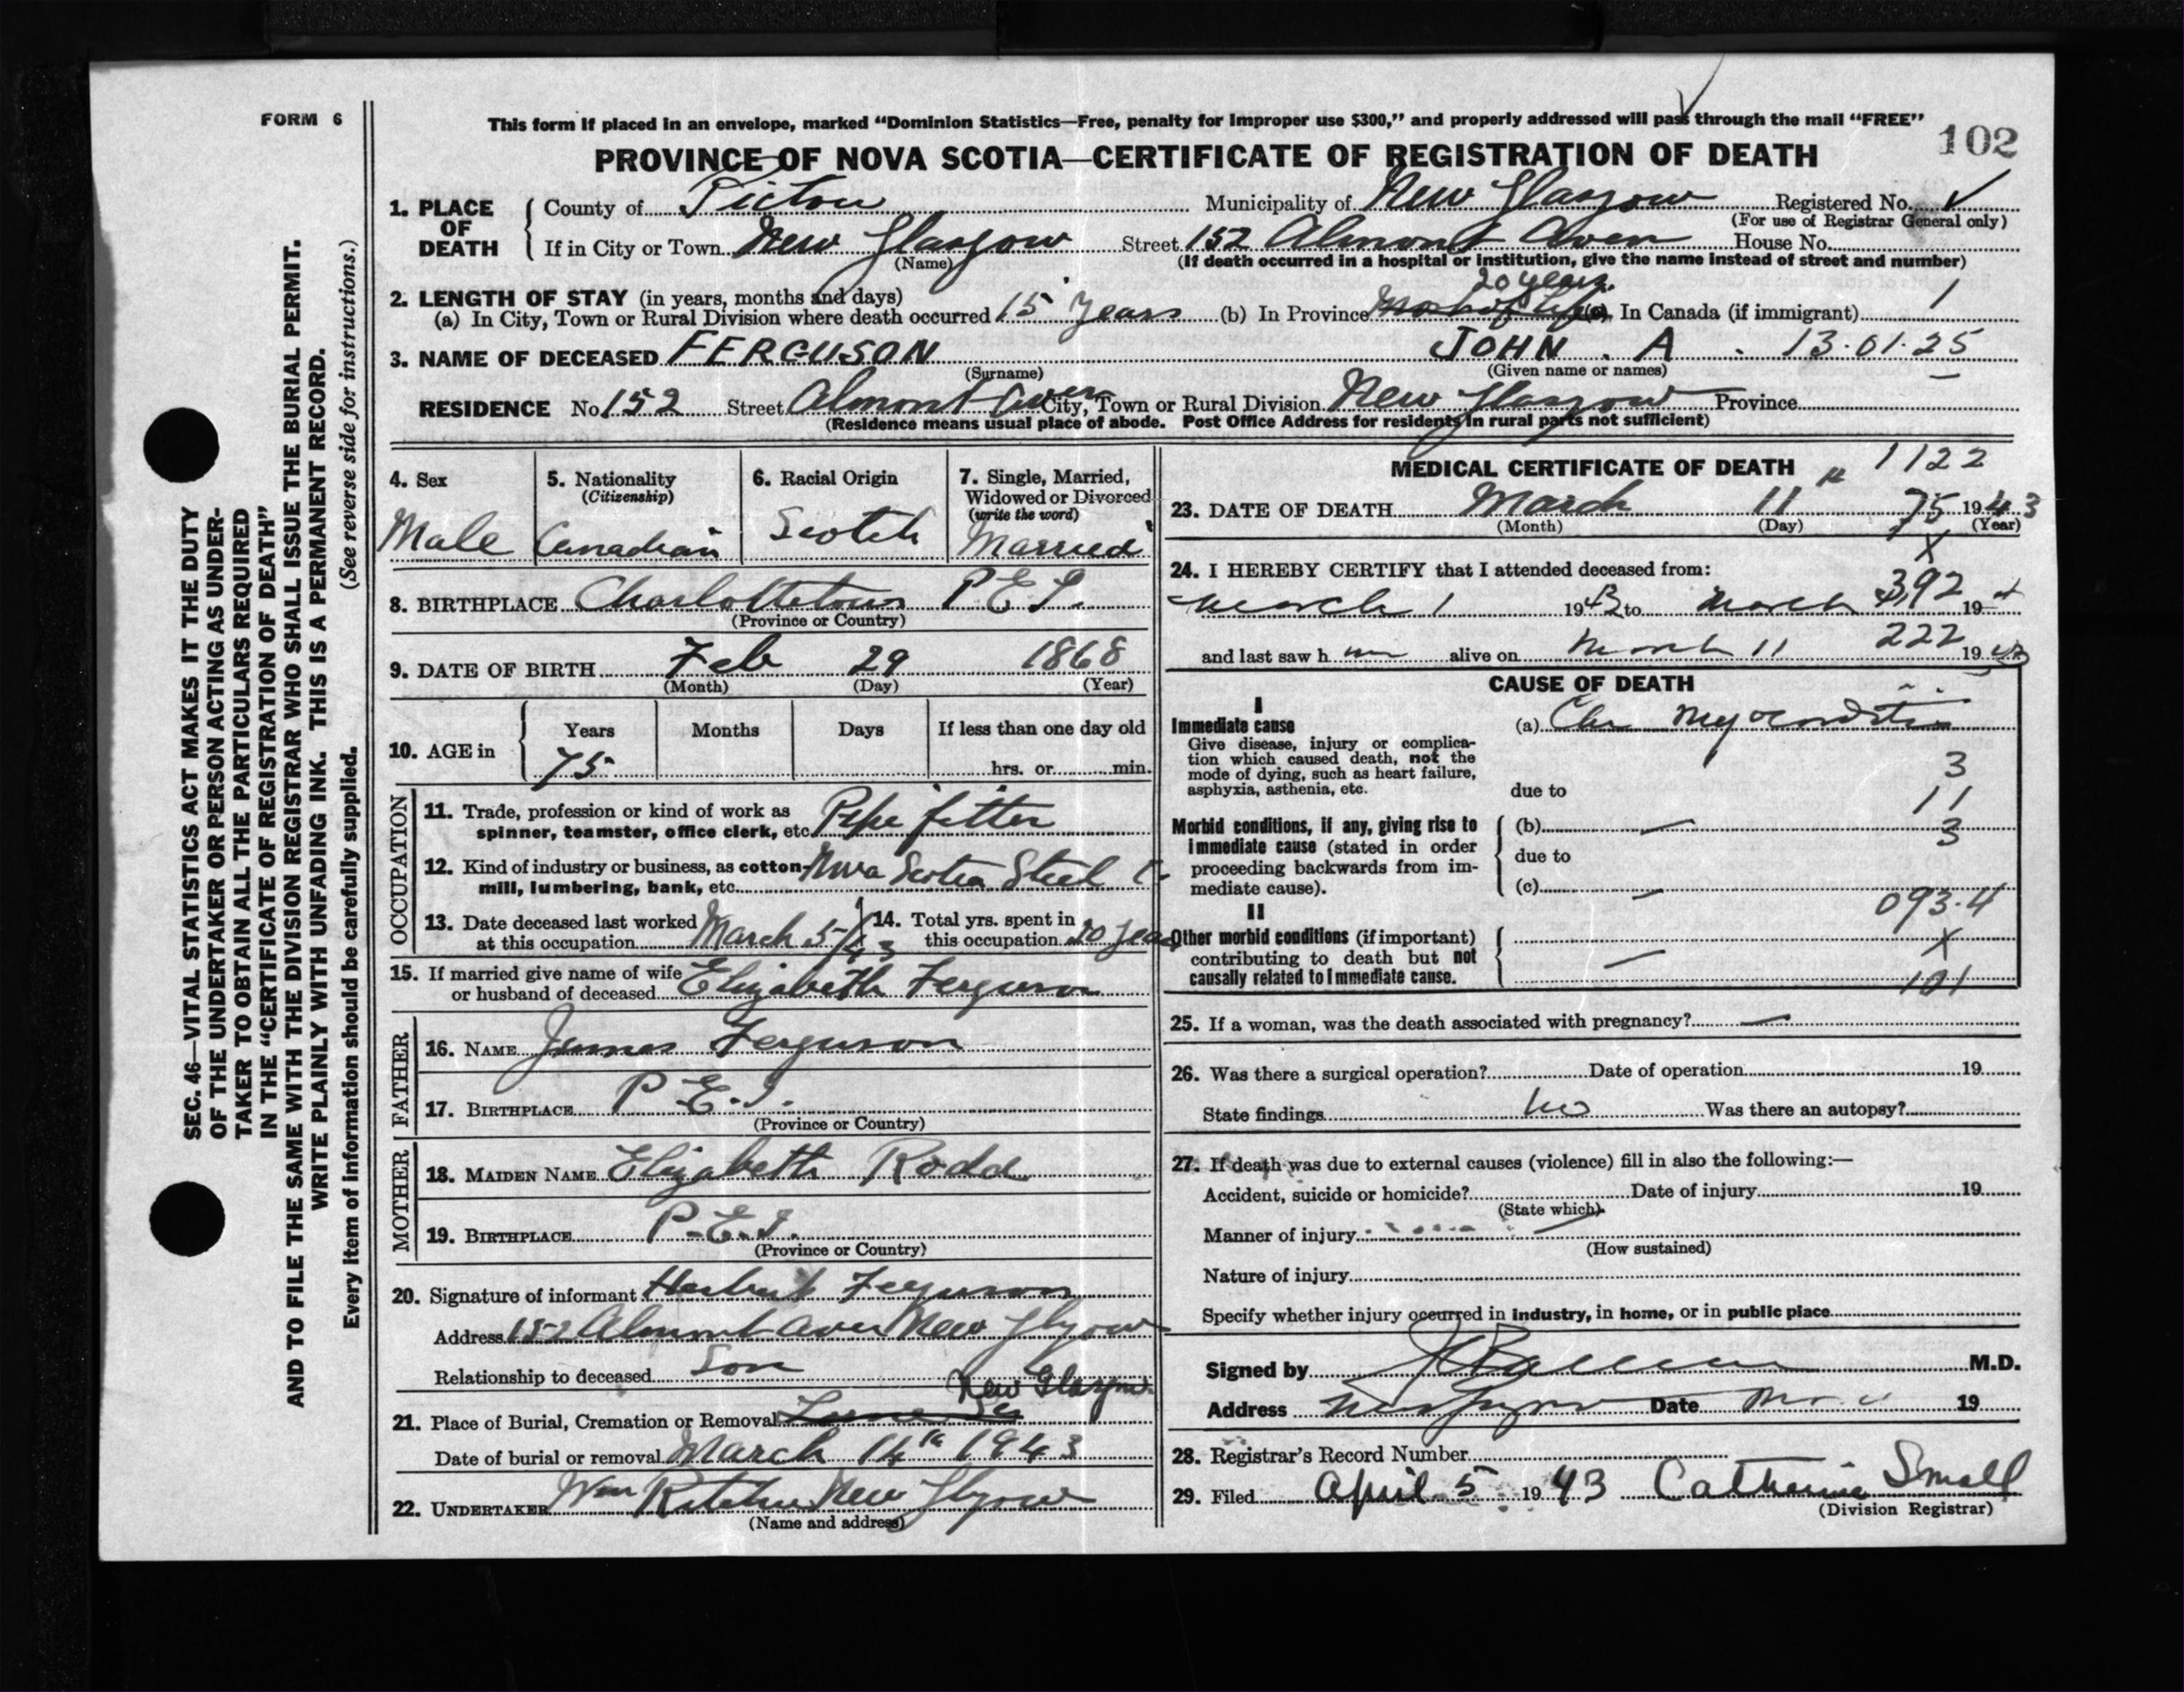 FORM 6
This form if placed in an envelope, marked "Dominion Statistics—Free, penalty for improper use $300," and properly addressed will pass through the mail "FREE"
102
PROVINCE OF NOVA SCOTIA—CERTIFICATE OF REGISTRATION OF DEATH
1. PLACE OF DEATH { County of Pictou Municipality of New Glasgow Registered No. ✓
(For use of Registrar General only)
If in City or Town New Glasgow Street 152 Almont Aven House No.
(Name) (If death occurred in a hospital or institution, give the name instead of street and number)
2. LENGTH OF STAY (in years, months and days) 20 years
(a) In City, Town or Rural Division where death occurred 15 years (b) In Province Most of Life (c) In Canada (if immigrant) 1
3. NAME OF DECEASED FERGUSON JOHN . A . 13.01.25
(Surname) (Given name or names)
RESIDENCE No. 152 Street Almont Aven City, Town or Rural Division New Glasgow Province
(Residence means usual place of abode. Post Office Address for residents in rural parts not sufficient)
4. Sex
Male
5. Nationality
(Citizenship)
Canadian
6. Racial Origin
Scotch
7. Single, Married,
Widowed or Divorced
(write the word)
Married
8. BIRTHPLACE Charlottetown P.E.I.
(Province or Country)
9. DATE OF BIRTH Feb 29 1868
(Month) (Day) (Year)
10. AGE in { Years Months Days If less than one day old
75 hrs. or min.
OCCUPATION
11. Trade, profession or kind of work as
spinner, teamster, office clerk, etc. Pipe fitter
12. Kind of industry or business, as cotton-
mill, lumbering, bank, etc. Nova Scotia Steel Co
13. Date deceased last worked
at this occupation March 5/43
14. Total yrs. spent in
this occupation 20 years
15. If married give name of wife
or husband of deceased Elizabeth Ferguson
FATHER
16. NAME James Ferguson
17. BIRTHPLACE P.E.I.
(Province or Country)
MOTHER
18. MAIDEN NAME Elizabeth Rodd
19. BIRTHPLACE P.E.I.
(Province or Country)
20. Signature of informant Herbert Ferguson
Address 152 Almont Aven New Glasgow
Relationship to deceased Son
New Glasgow
21. Place of Burial, Cremation or Removal
Date of burial or removal March 14th 1943
22. UNDERTAKER Wm Ritchie New Glasgow
(Name and address)
MEDICAL CERTIFICATE OF DEATH 1122
23. DATE OF DEATH March 11th 75 1943
(Month) (Day) (Year)
X
24. I HEREBY CERTIFY that I attended deceased from:
March 1 1943 to March 392 194
and last saw him alive on March 11 222 1943
CAUSE OF DEATH
I
Immediate cause
Give disease, injury or complica-
tion which caused death, not the
mode of dying, such as heart failure,
asphyxia, asthenia, etc.
(a) Chr Myocarditis
3
due to
11
Morbid conditions, if any, giving rise to
immediate cause (stated in order
proceeding backwards from im-
mediate cause).
(b) — 3
due to
(c) —
093.4
II
Other morbid conditions (if important)
contributing to death but not
causally related to immediate cause.
— X
101
25. If a woman, was the death associated with pregnancy? —
26. Was there a surgical operation? Date of operation 19
State findings no Was there an autopsy?
27. If death was due to external causes (violence) fill in also the following:—
Accident, suicide or homicide? Date of injury 19
(State which)
Manner of injury —
(How sustained)
Nature of injury
Specify whether injury occurred in industry, in home, or in public place
Signed by M.D.
Address New Glasgow Date 19
28. Registrar's Record Number
29. Filed April 5 1943 Catherine Small
(Division Registrar)
SEC. 46—VITAL STATISTICS ACT MAKES IT THE DUTY
OF THE UNDERTAKER OR PERSON ACTING AS UNDER-
TAKER TO OBTAIN ALL THE PARTICULARS REQUIRED
IN THE "CERTIFICATE OF REGISTRATION OF DEATH"
AND TO FILE THE SAME WITH THE DIVISION REGISTRAR WHO SHALL ISSUE THE BURIAL PERMIT.
WRITE PLAINLY WITH UNFADING INK. THIS IS A PERMANENT RECORD.
Every item of information should be carefully supplied. (See reverse side for instructions.)